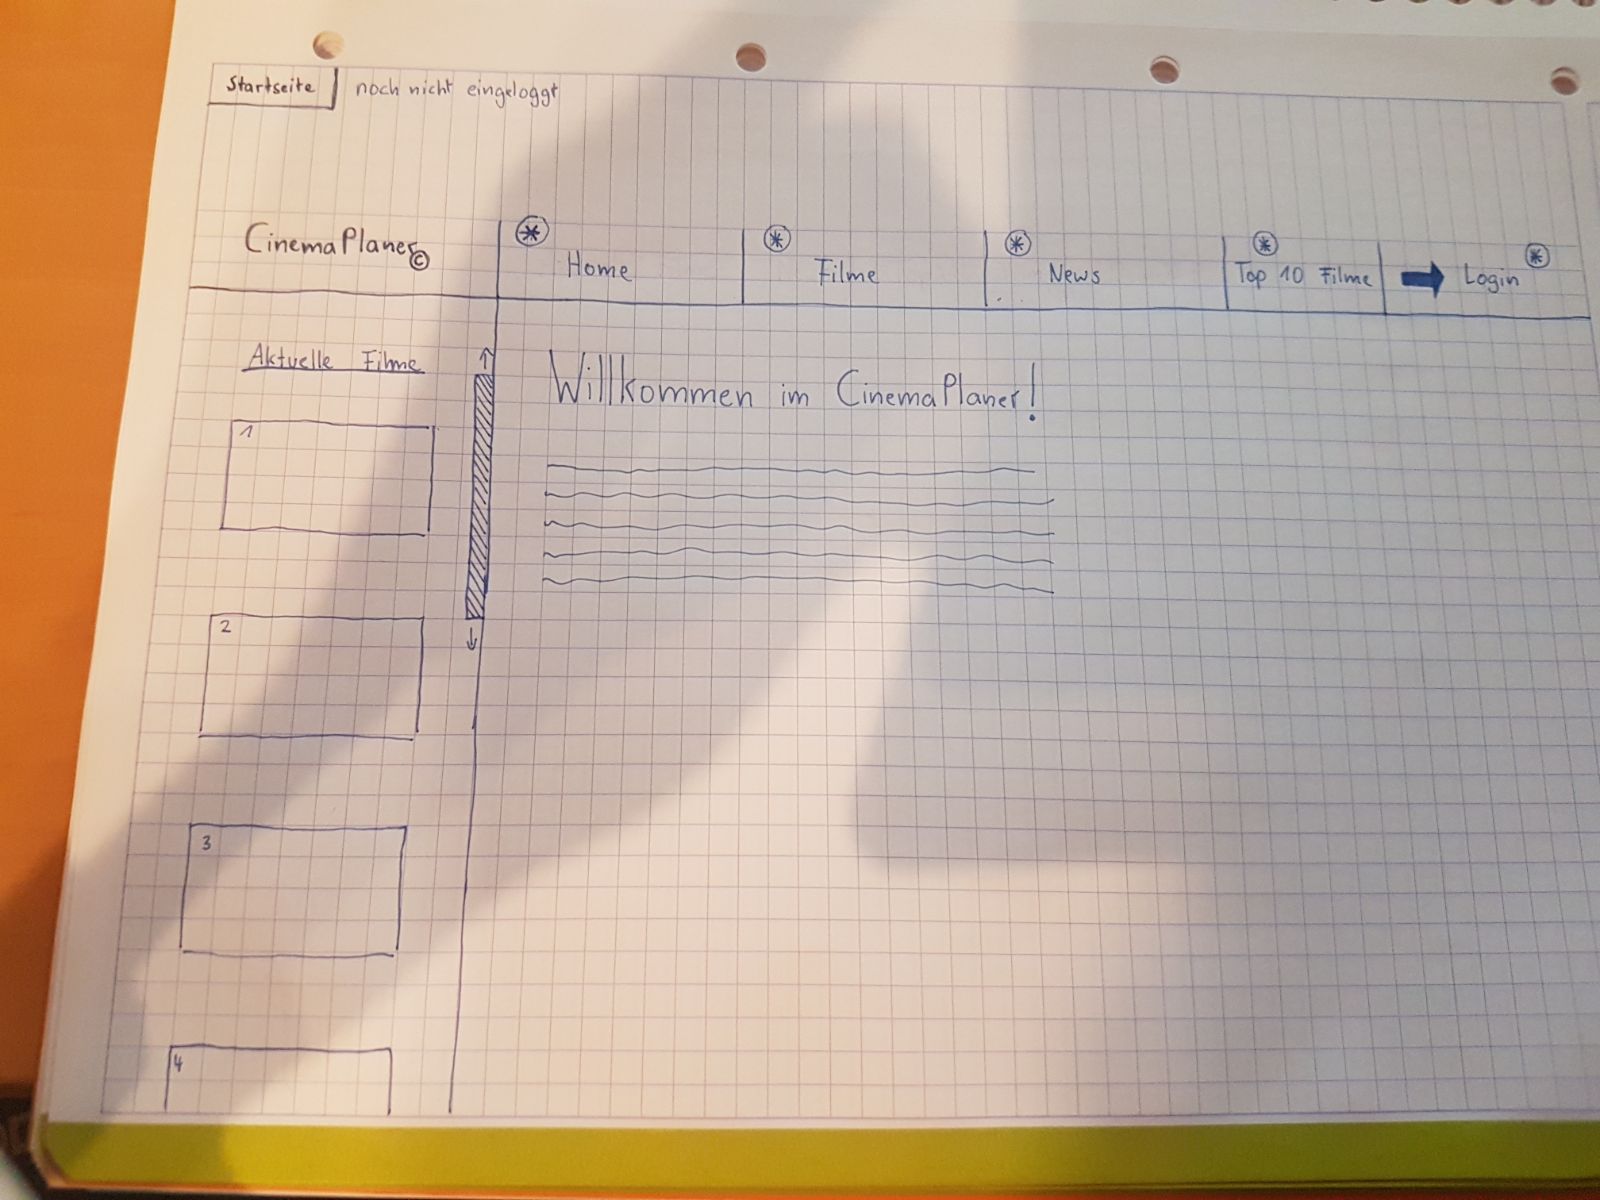 Startseite noch nicht eingeloggt
CinemaPlaner © Home Filme News Top 10 Filme Login
Aktuelle Filme
Willkommen im CinemaPlaner!
1
2
3
4